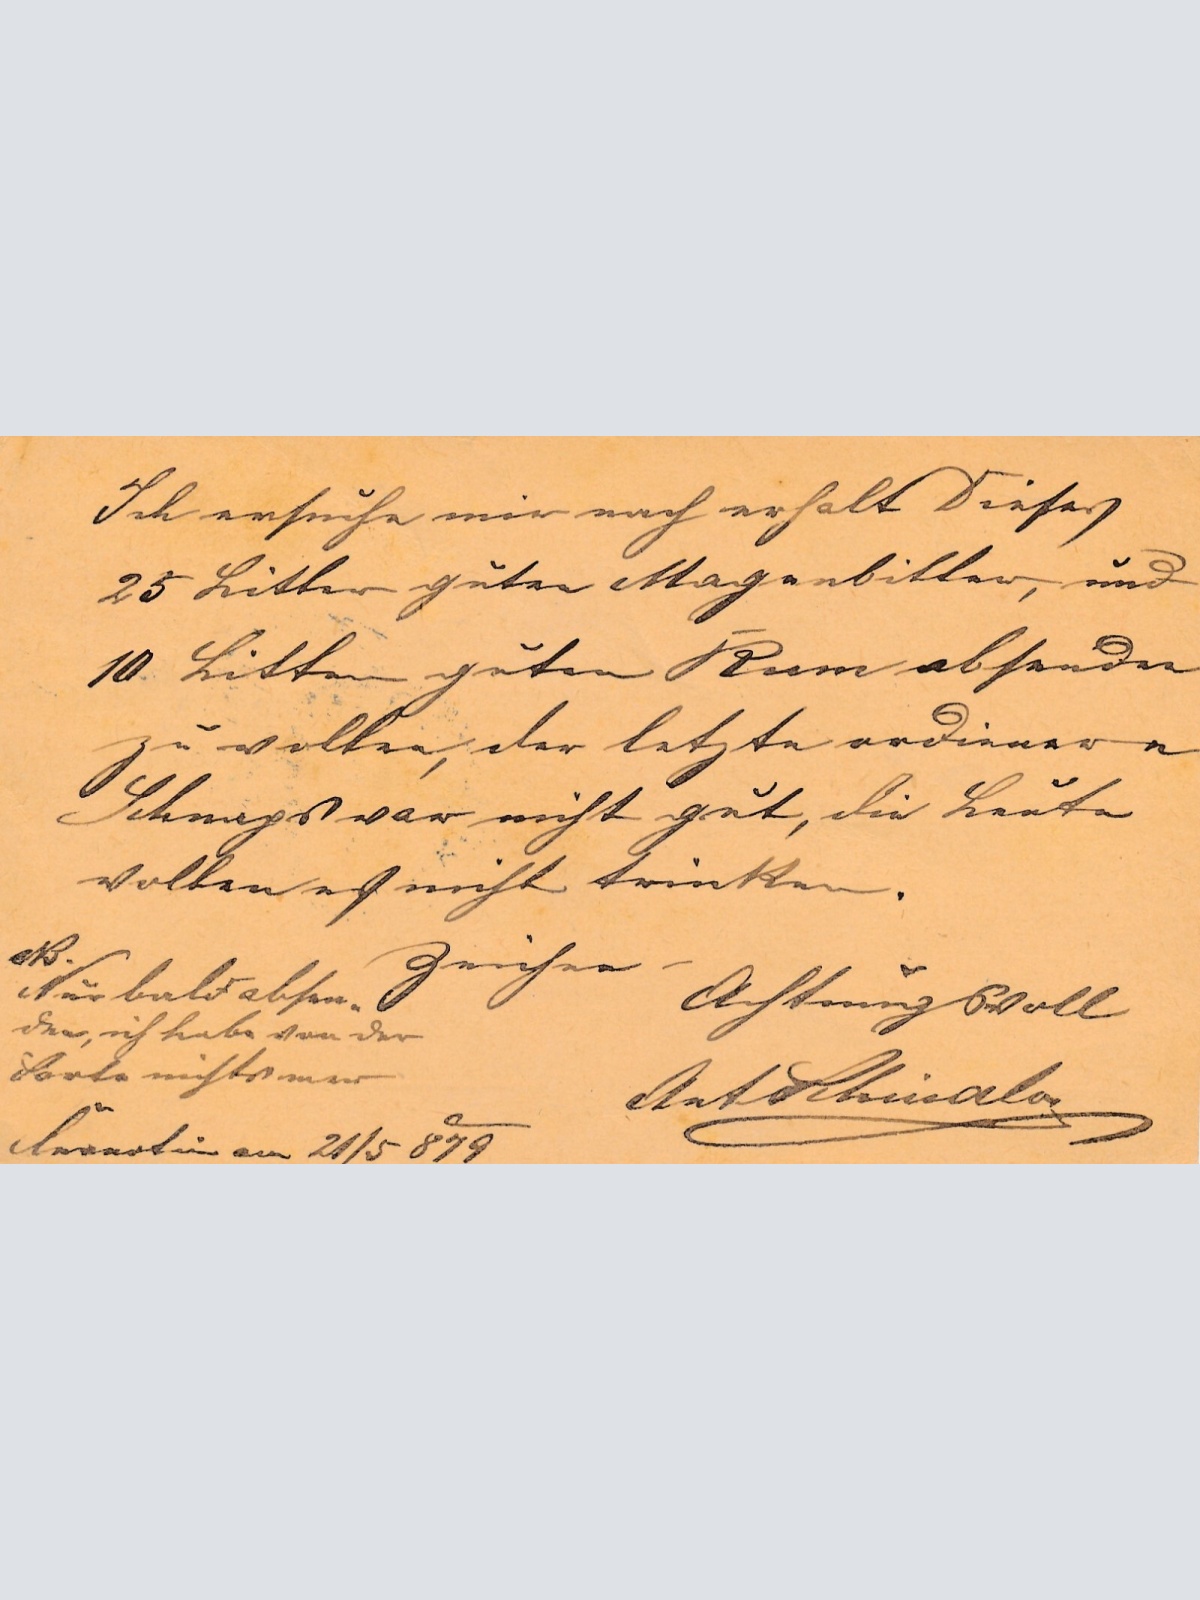 Ich ersuche mir nach erhalt Dieses
25 Litter guten Magenbitter, und
10 Litter guten Rum absenden
zu wollen, der letzte ordienere
Schnaps war nicht gut, die Leute
wollen es nicht trinken.
Zeichne -
Achtungsvoll
Ant
NB.
Nur bald absen-
den, ich habe von der
Sorte nichts mer
am 21/5 879